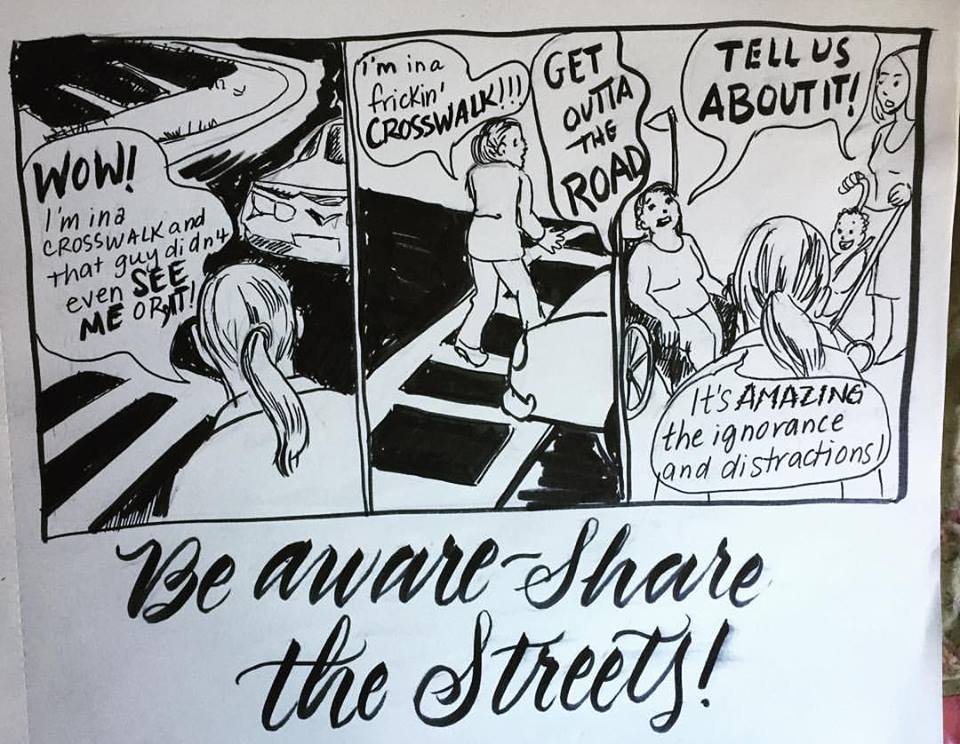 WOW!
I'm in a
CROSSWALK and
that guy didn't
even SEE
ME OR IT!
i'm in a
frickin'
CROSSWALK!!!
GET
OUTTA
THE
ROAD
TELL US
ABOUT IT!
It's AMAZING
the ignorance
and distractions!
Be aware-Share
the Streets!